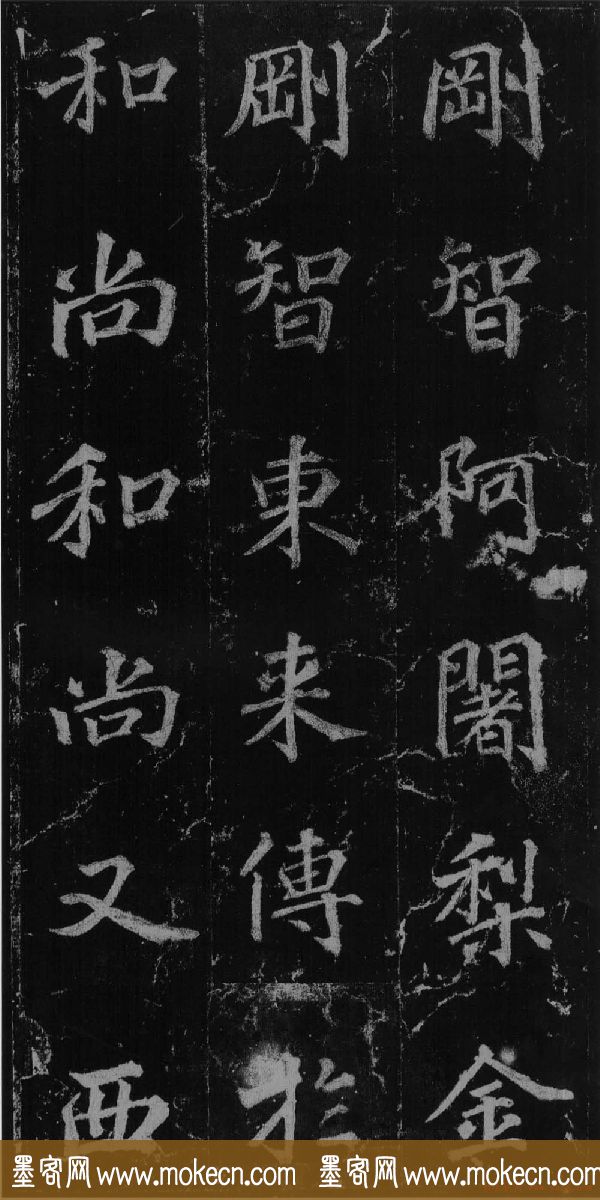 剛智阿闍梨金
剛智東来傳於
和尚和尚又西
墨客网 www.mokecn.com 墨客网 www.mokecn.com